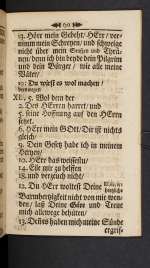 60
13. Höre mein Gebeht/ HErr/ ver-
nimm mein Schreyen/ und schweige
nicht über mein Seufftzen und Thrä-
nen/ denn ich bin beyde dein Pilgrim
und dein Bürger/ wie alle meine
Väter/
Du wirst es wol machen/
XI. 5. Wol dem der
5. des HErren harret/ und
5. seine Hoffnung auf den HErrn
setzet
6. HErr mein GOtt/ Dir ist nichts
gleich
9. Dein Gesetz habe ich in meinem
Hertzen/
10. HErr das weissestu/
14. Eile mir zu helffen
18. und verzeuch nicht/
12. Du HErr wollest Deine
Barmhertzigkeit nicht von mir wen-
den/ laß Deine Güte und Treue
mich allewege behüten/
13. Denn es haben mich meine Sünde
ergrif-